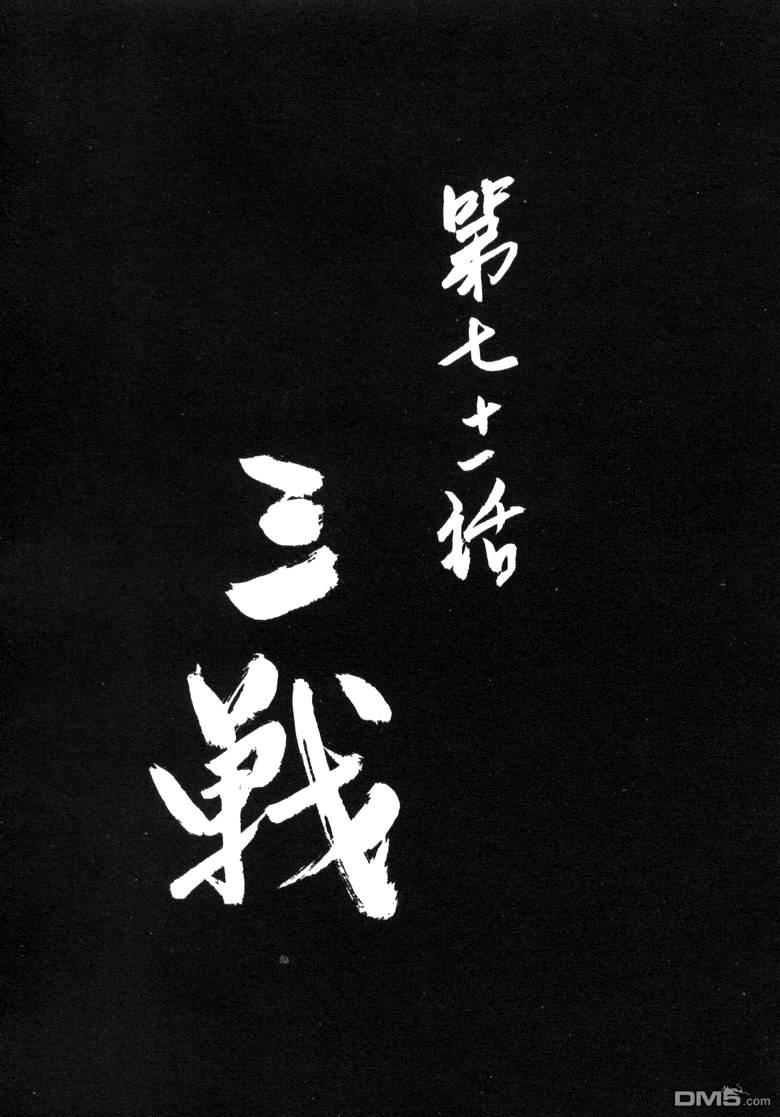 第七十一話
三戦
DM5.com